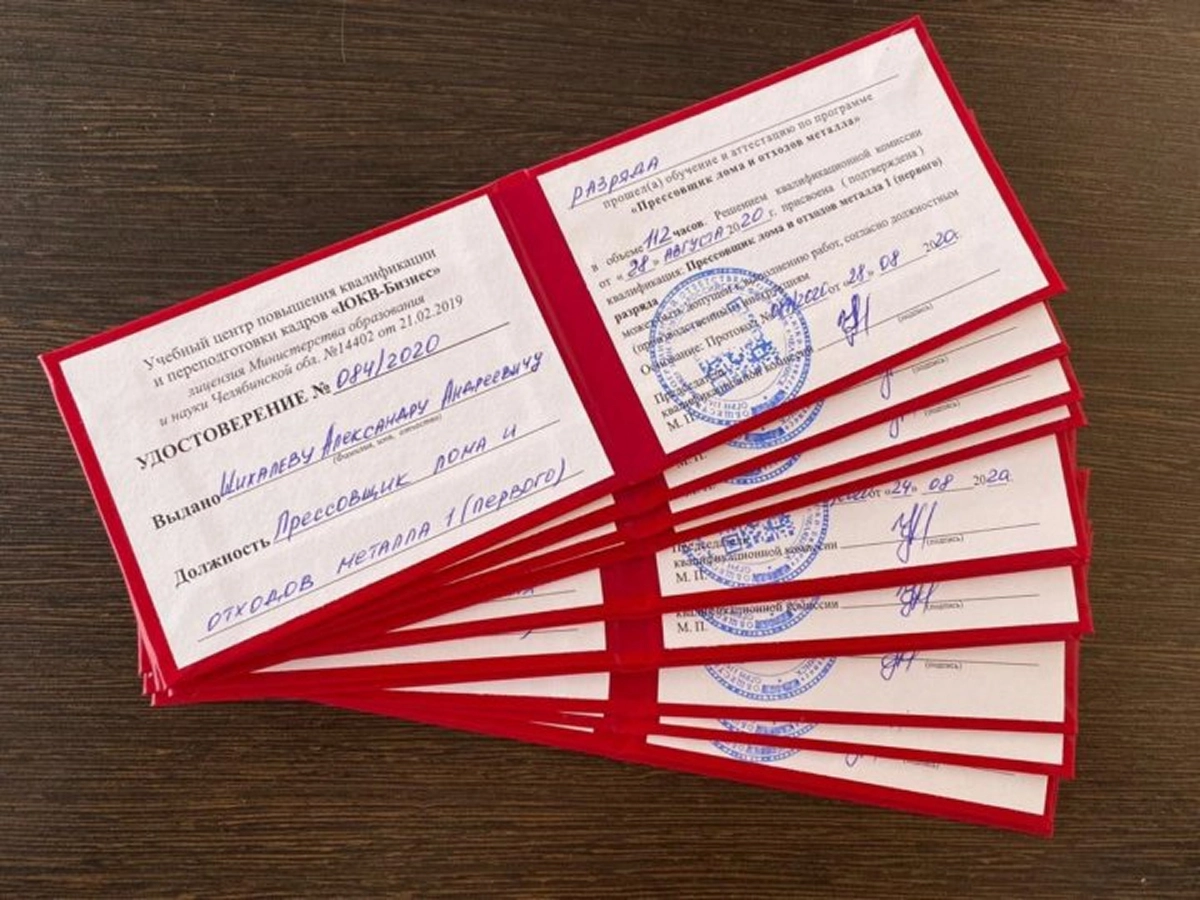 Учебный центр повышения квалификации
и переподготовки кадров «ЮКВ-Бизнес»
лицензия Министерства образования
и науки Челябинской обл. №14402 от 21.02.2019
УДОСТОВЕРЕНИЕ № 084/2020
Выдано Шихалеву Александру Андреевичу
(фамилия, имя, отчество)
Должность Прессовщик лома и
отходов металла 1 (первого)
разряда
прошел(а) обучение и аттестацию по программе
«Прессовщик лома и отходов металла»
в объеме 112 часов. Решением квалификационной комиссии
от «28» августа 2020 г. присвоена (подтверждена)
квалификация: Прессовщик лома и отходов металла 1 (первого)
разряда
может быть допущен к выполнению работ, согласно должностным
(производственным) инструкциям
Основание: Протокол № от «28» 08 2020г.
Председатель
квалификационной комиссии
(подпись)
М. П.
(подпись)
М. П.
(подпись)
от «24» 08 2020г.
Председатель
квалификационной комиссии
(подпись)
М. П.
квалификационной комиссии
(подпись)
М. П.
(подпись)